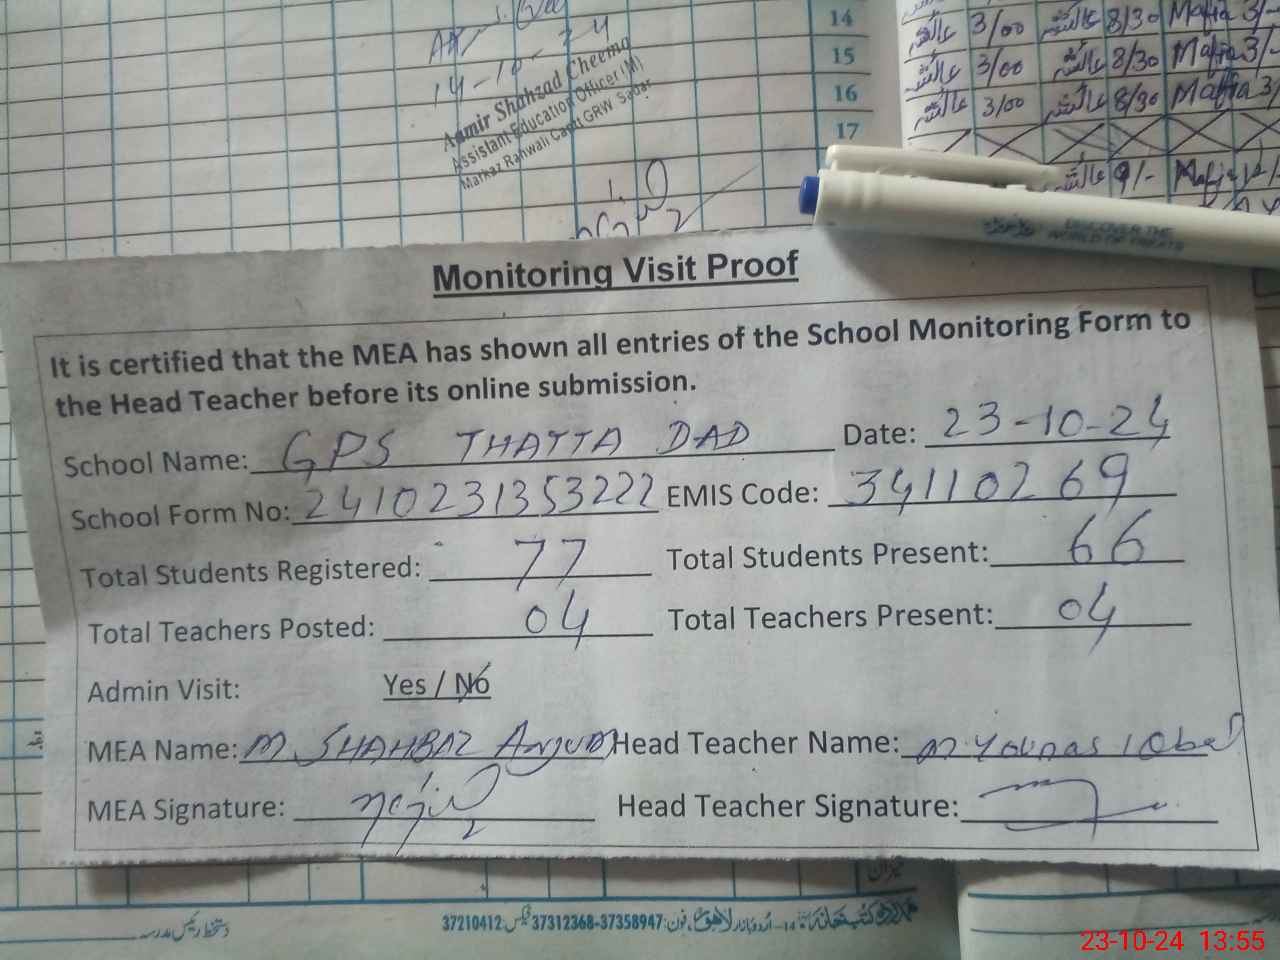 14-10-24
Aamir Shahzad Cheema
Assistant Education Officer (M)
Markaz Rahwali Cantt GRW Sadar
14
15
16
17
3/00 8/30 3/
3/00 8/30 3/
3/00 8/30 3/
9/-
DISCOVER THE
Monitoring Visit Proof
It is certified that the MEA has shown all entries of the School Monitoring Form to
the Head Teacher before its online submission.
School Name: GPS THATTA DAD Date: 23-10-24
School Form No: 2410231353222 EMIS Code: 34110269
Total Students Registered: 77 Total Students Present: 66
Total Teachers Posted: 04 Total Teachers Present: 04
Admin Visit: Yes / No
MEA Name: M SHAHBAZ Anjum Head Teacher Name: M. Younas Iqbal
MEA Signature: Head Teacher Signature:
میزان
اردو بازار لاہور، فون: 37312368-37358947 فیکس: 37210412
دستخط رئیس مدرسہ
23-10-24 13:55